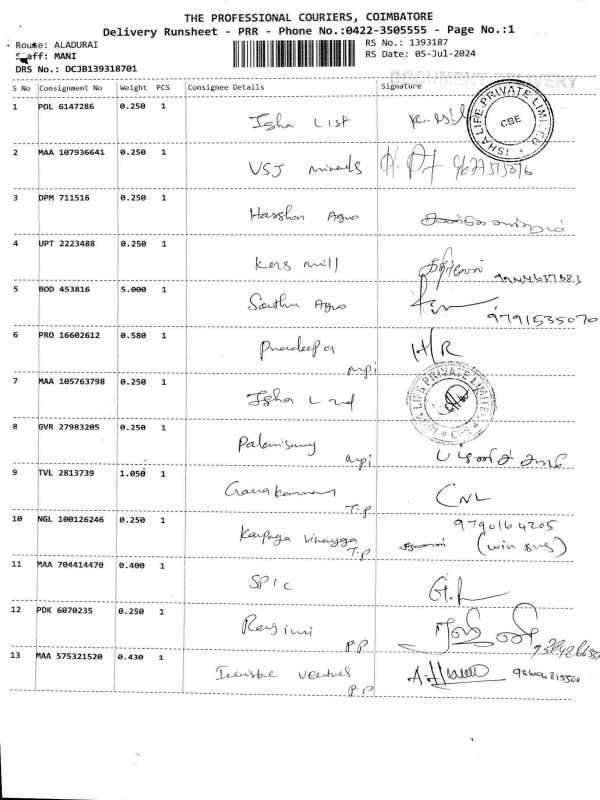 THE PROFESSIONAL COURIERS, COIMBATORE
Delivery Runsheet - PRR - Phone No.:0422-3505555 - Page No.:1
Route: ALADURAI
RS No.: 1393187
Staff: MANI
RS Date: 05-Jul-2024
DRS No.: DCJB139318701
DOCUMENT DELIVERY
S No Consignment No Weight PCS Consignee Details Signature
1 POL 6147286 0.250 1 Isha List
ISHA LIFE PRIVATE LIMITED CBE
2 MAA 107936641 0.250 1 VSJ minerals
3 DPM 711516 0.250 1 Agro
4 UPT 2223488 0.250 1 Kers mill
5 BOD 453816 5.000 1 Sathu Agro
9791535070
6 PRO 16602612 0.580 1 Pradeepa mpi H/R
7 MAA 105763798 0.250 1 Isha
ISHA LIFE PRIVATE LIMITED
8 GVR 27983205 0.250 1 Palanisamy mpi
9 TVL 2813739 1.050 1 T.P CNL
10 NGL 100126246 0.250 1 Karpaga Vinayaga T.P 9790164205
11 MAA 704414470 0.400 1 SPIC
12 PDK 6070235 0.250 1 Ragini P.P
13 MAA 575321520 0.430 1 P.P